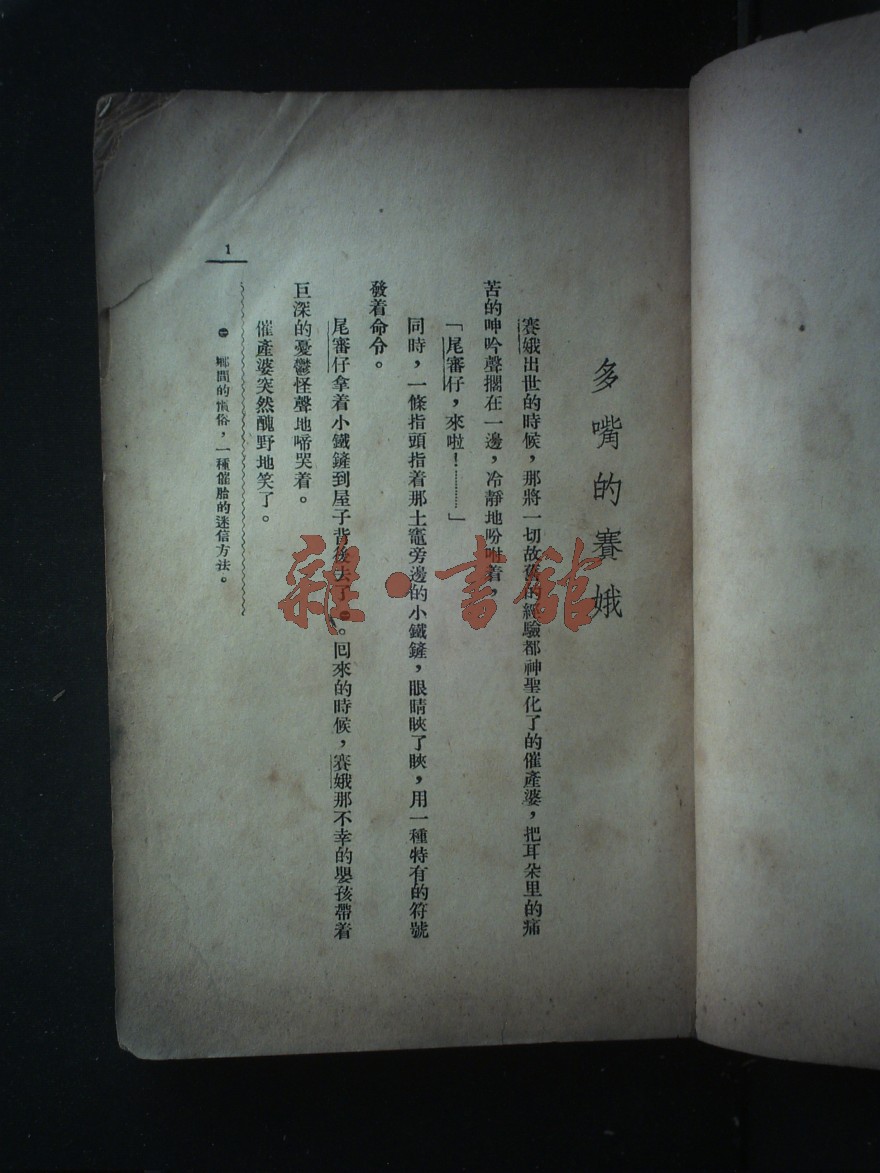 多嘴的賽娥
賽娥出世的時候，那將一切故舊的經驗都神聖化了的催產婆，把耳朵里的痛
苦的呻吟聲擱在一邊，冷靜地吩咐着，
「尾審仔，來啦！………」
同時，一條指頭指着那土竈旁邊的小鐵鏟，眼睛䀹了䀹，用一種特有的符號
發着命令。
尾審仔拿着小鐵鏟到屋子背後去了㊀。回來的時候，賽娥那不幸的嬰孩帶着
巨深的憂鬱怪聲地啼哭着。
催產婆突然醜野地笑了。
㊀ 鄉間的慣俗，一種催胎的迷信方法。
1
雜·書館